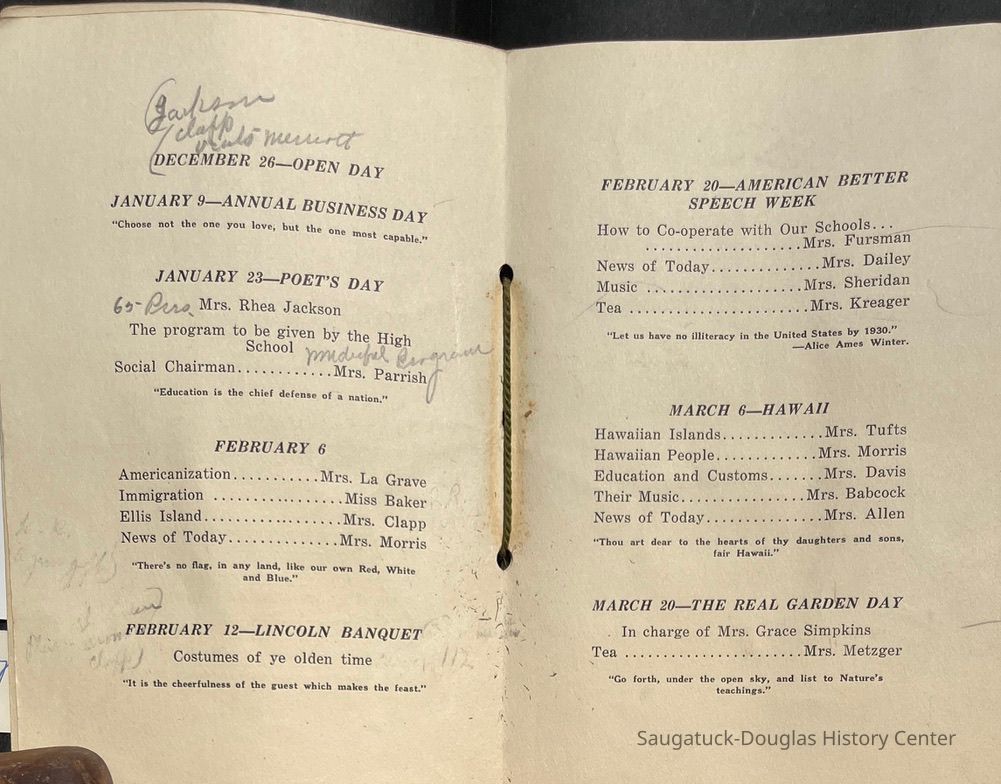 Jackson
Clapp
Merriott
DECEMBER 26—OPEN DAY
JANUARY 9—ANNUAL BUSINESS DAY
"Choose not the one you love, but the one most capable."
JANUARY 23—POET'S DAY
65- Mrs. Rhea Jackson
The program to be given by the High
School
Social Chairman............Mrs. Parrish
"Education is the chief defense of a nation."
FEBRUARY 6
Americanization...........Mrs. La Grave
Immigration ................Miss Baker
Ellis Island..................Mrs. Clapp
News of Today..............Mrs. Morris
"There's no flag, in any land, like our own Red, White
and Blue."
FEBRUARY 12—LINCOLN BANQUET
Costumes of ye olden time
"It is the cheerfulness of the guest which makes the feast."
FEBRUARY 20—AMERICAN BETTER
SPEECH WEEK
How to Co-operate with Our Schools...
....................Mrs. Fursman
News of Today..............Mrs. Dailey
Music ....................Mrs. Sheridan
Tea .......................Mrs. Kreager
"Let us have no illiteracy in the United States by 1930."
—Alice Ames Winter.
MARCH 6—HAWAII
Hawaiian Islands.............Mrs. Tufts
Hawaiian People.............Mrs. Morris
Education and Customs.......Mrs. Davis
Their Music................Mrs. Babcock
News of Today...............Mrs. Allen
"Thou art dear to the hearts of thy daughters and sons,
fair Hawaii."
MARCH 20—THE REAL GARDEN DAY
In charge of Mrs. Grace Simpkins
Tea .......................Mrs. Metzger
"Go forth, under the open sky, and list to Nature's
teachings."
Saugatuck-Douglas History Center